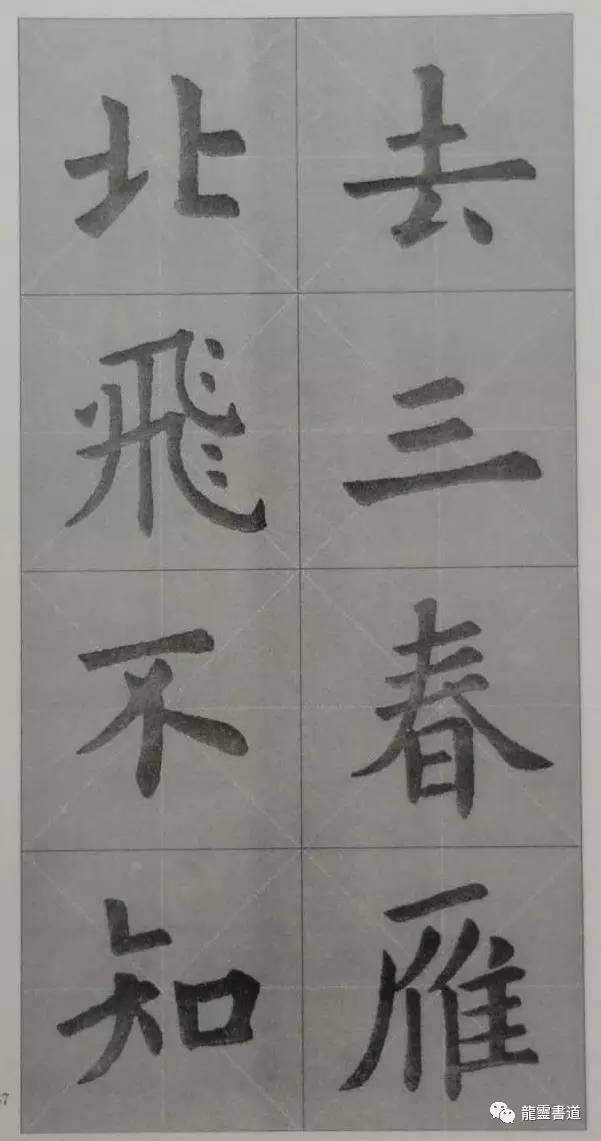 去三春雁
北飛不知
37
龍靈書道